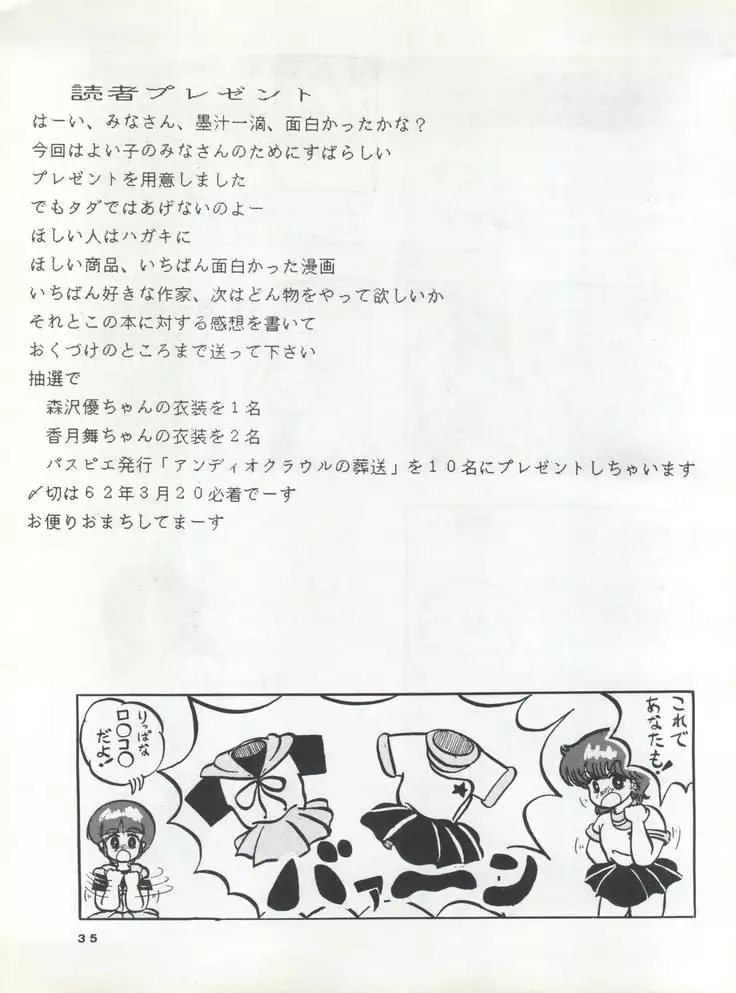 読者プレゼント
はーい、みなさん、墨汁一滴、面白かったかな？
今回はよい子のみなさんのためにすばらしい
プレゼントを用意しました
でもタダではあげないのよー
ほしい人はハガキに
ほしい商品、いちばん面白かった漫画
いちばん好きな作家、次はどん物をやって欲しいか
それとこの本に対する感想を書いて
おくづけのところまで送って下さい
抽選で
森沢優ちゃんの衣装を１名
香月舞ちゃんの衣装を２名
パスピエ発行「アンディオクラウルの葬送」を１０名にプレゼントしちゃいます
〆切は６２年３月２０必着でーす
お便りおまちしてまーす
これで
あなたも！
バァーン
りっぱな
ロ〇コ〇
だよ！
35